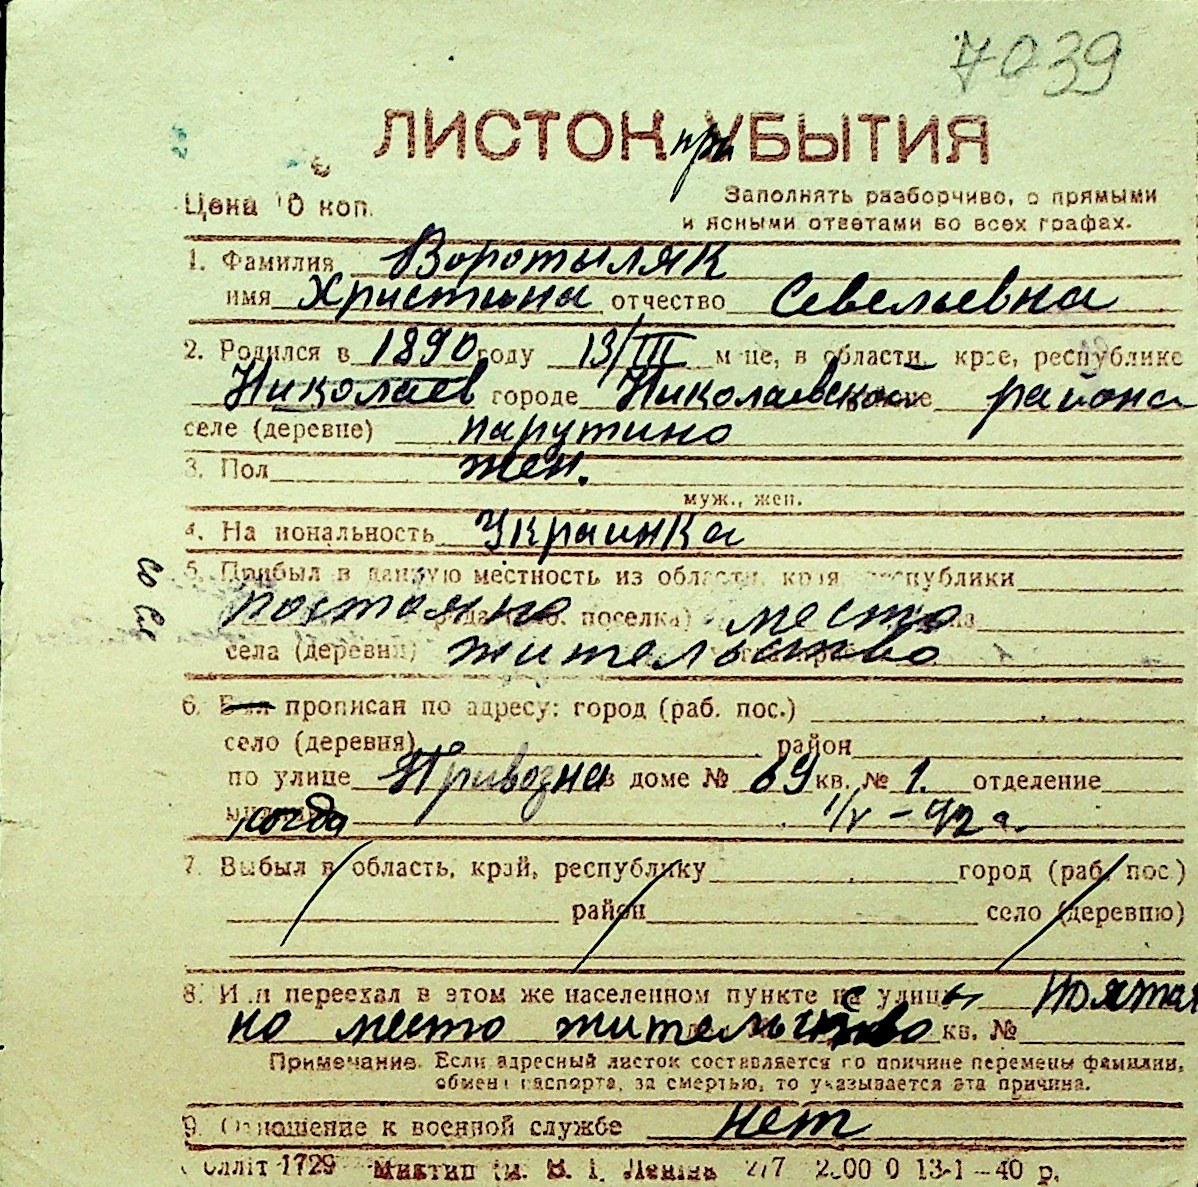 7039
ЛИСТОК при УБЫТИЯ
Цена 10 коп.
Заполнять разборчиво, с прямыми
и ясными ответами во всех графах.
1. Фамилия Воротыляк
имя Христина отчество Севельевна
2. Родился в 1890 году 13/III м-це, в области, крае, республике
Николаев городе Николаевской районе района
селе (деревне) парутино
3. Пол жен.
муж., жен.
4. Национальность Украинка
5. Прибыл в данную местность из области, края, республики
постояно поселка) место
села (деревни) жительство
6. Был прописан по адресу: город (раб. пос.)
село (деревня) район
по улице Привозна в доме № 69 кв. № 1. отделение
когда 1/V - 42 г.
7. Выбыл в область, край, республику город (раб. пос.)
район село (деревню)
8. Или переехал в этом же населенном пункте на улицу Поятая
но место жительство кв. №
Примечание. Если адресный листок составляется по причине перемены фамилии,
обмена паспорта, за смертью, то указывается эта причина.
9. Отношение к военной службе нет
Оллiт 1729 Миктип iм. В. I. Ленiна 277 2000 0 13-1-40 р.